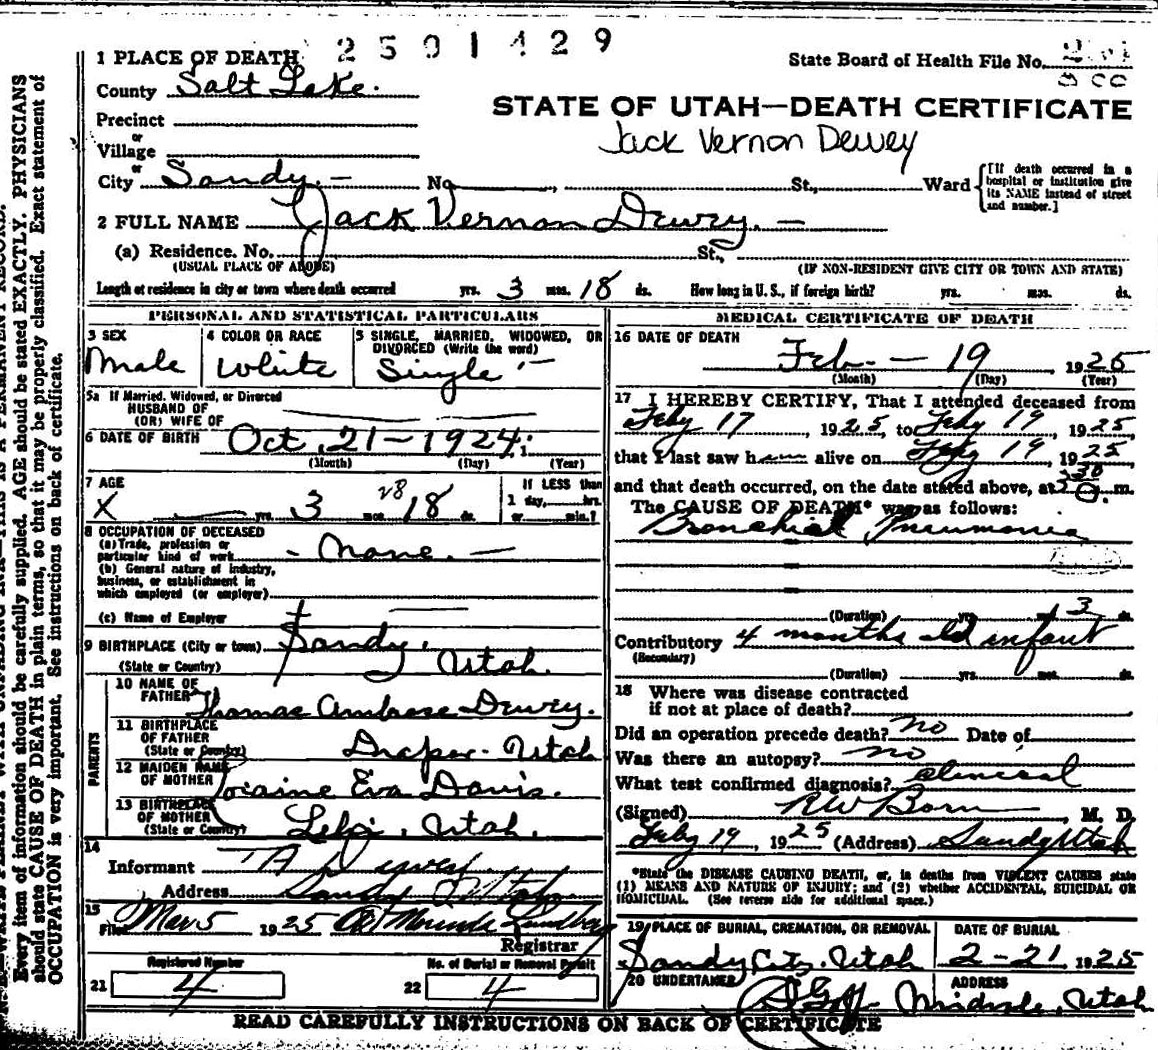 2501429
1 PLACE OF DEATH
State Board of Health File No.
County Salt Lake.
STATE OF UTAH—DEATH CERTIFICATE
Precinct
Jack Vernon Dewey
or
Village
or
City Sandy.— No. , St., Ward [If death occurred in a hospital or institution give its NAME instead of street and number.]
2 FULL NAME Jack Vernon Dewey. —
(a) Residence. No. St.,
(USUAL PLACE OF ABODE) (IF NON-RESIDENT GIVE CITY OR TOWN AND STATE)
Length of residence in city or town where death occurred yrs. 3 mos. 18 ds. How long in U. S., if foreign birth? yrs. mos. ds.
PERSONAL AND STATISTICAL PARTICULARS
3 SEX 4 COLOR OR RACE 5 SINGLE, MARRIED, WIDOWED, OR DIVORCED (Write the word)
Male White Single
5a If Married, Widowed, or Divorced
HUSBAND OF
(OR) WIFE OF
6 DATE OF BIRTH Oct. 21-1924
(Month) (Day) (Year)
7 AGE If LESS than
X yrs. 3 mos. 28 18 ds. 1 day, hrs.
or min.?
8 OCCUPATION OF DECEASED
(a) Trade, profession or
particular kind of work - None. -
(b) General nature of industry,
business, or establishment in
which employed (or employer)
(c) Name of Employer
9 BIRTHPLACE (City or town) Sandy.
(State or Country) Utah.
PARENTS
10 NAME OF
FATHER Thomas Ambrose Dewey.
11 BIRTHPLACE
OF FATHER
(State or Country) Draper. Utah
12 MAIDEN NAME
OF MOTHER Loraine Eva Davis.
13 BIRTHPLACE
OF MOTHER
(State or Country) Lehi. Utah.
14
Informant T A Dewey
Address Sandy Utah
15
Filed Mar 5 1925
Registrar
Registered Number No. of Burial or Removal Permit
21 4 22 4
MEDICAL CERTIFICATE OF DEATH
16 DATE OF DEATH
Feb. - 19 1925
(Month) (Day) (Year)
17 I HEREBY CERTIFY, That I attended deceased from
Feby 17, 1925, to Feby 19, 1925,
that I last saw h alive on Feby 19, 1925
and that death occurred, on the date stated above, at m.
The CAUSE OF DEATH* was as follows:
Bronchial Pneumonia
(Duration) yrs. mos. 3 ds.
Contributory 4 months old infant
(Secondary)
(Duration) yrs. mos. ds.
18 Where was disease contracted
if not at place of death?
Did an operation precede death? no Date of
Was there an autopsy? no
What test confirmed diagnosis? clinical
(Signed) M. D.
Feby 19, 1925 (Address) Sandy Utah
*State the DISEASE CAUSING DEATH, or, in deaths from VIOLENT CAUSES state
(1) MEANS AND NATURE OF INJURY; and (2) whether ACCIDENTAL, SUICIDAL OR
HOMICIDAL. (See reverse side for additional space.)
19 PLACE OF BURIAL, CREMATION, OR REMOVAL DATE OF BURIAL
Sandy City. Utah 2-21 1925
20 UNDERTAKER ADDRESS
Midvale, Utah
READ CAREFULLY INSTRUCTIONS ON BACK OF CERTIFICATE
Every item of information should be carefully supplied. AGE should be stated EXACTLY. PHYSICIANS
should state CAUSE OF DEATH in plain terms, so that it may be properly classified. Exact statement of
OCCUPATION is very important. See instructions on back of certificate.